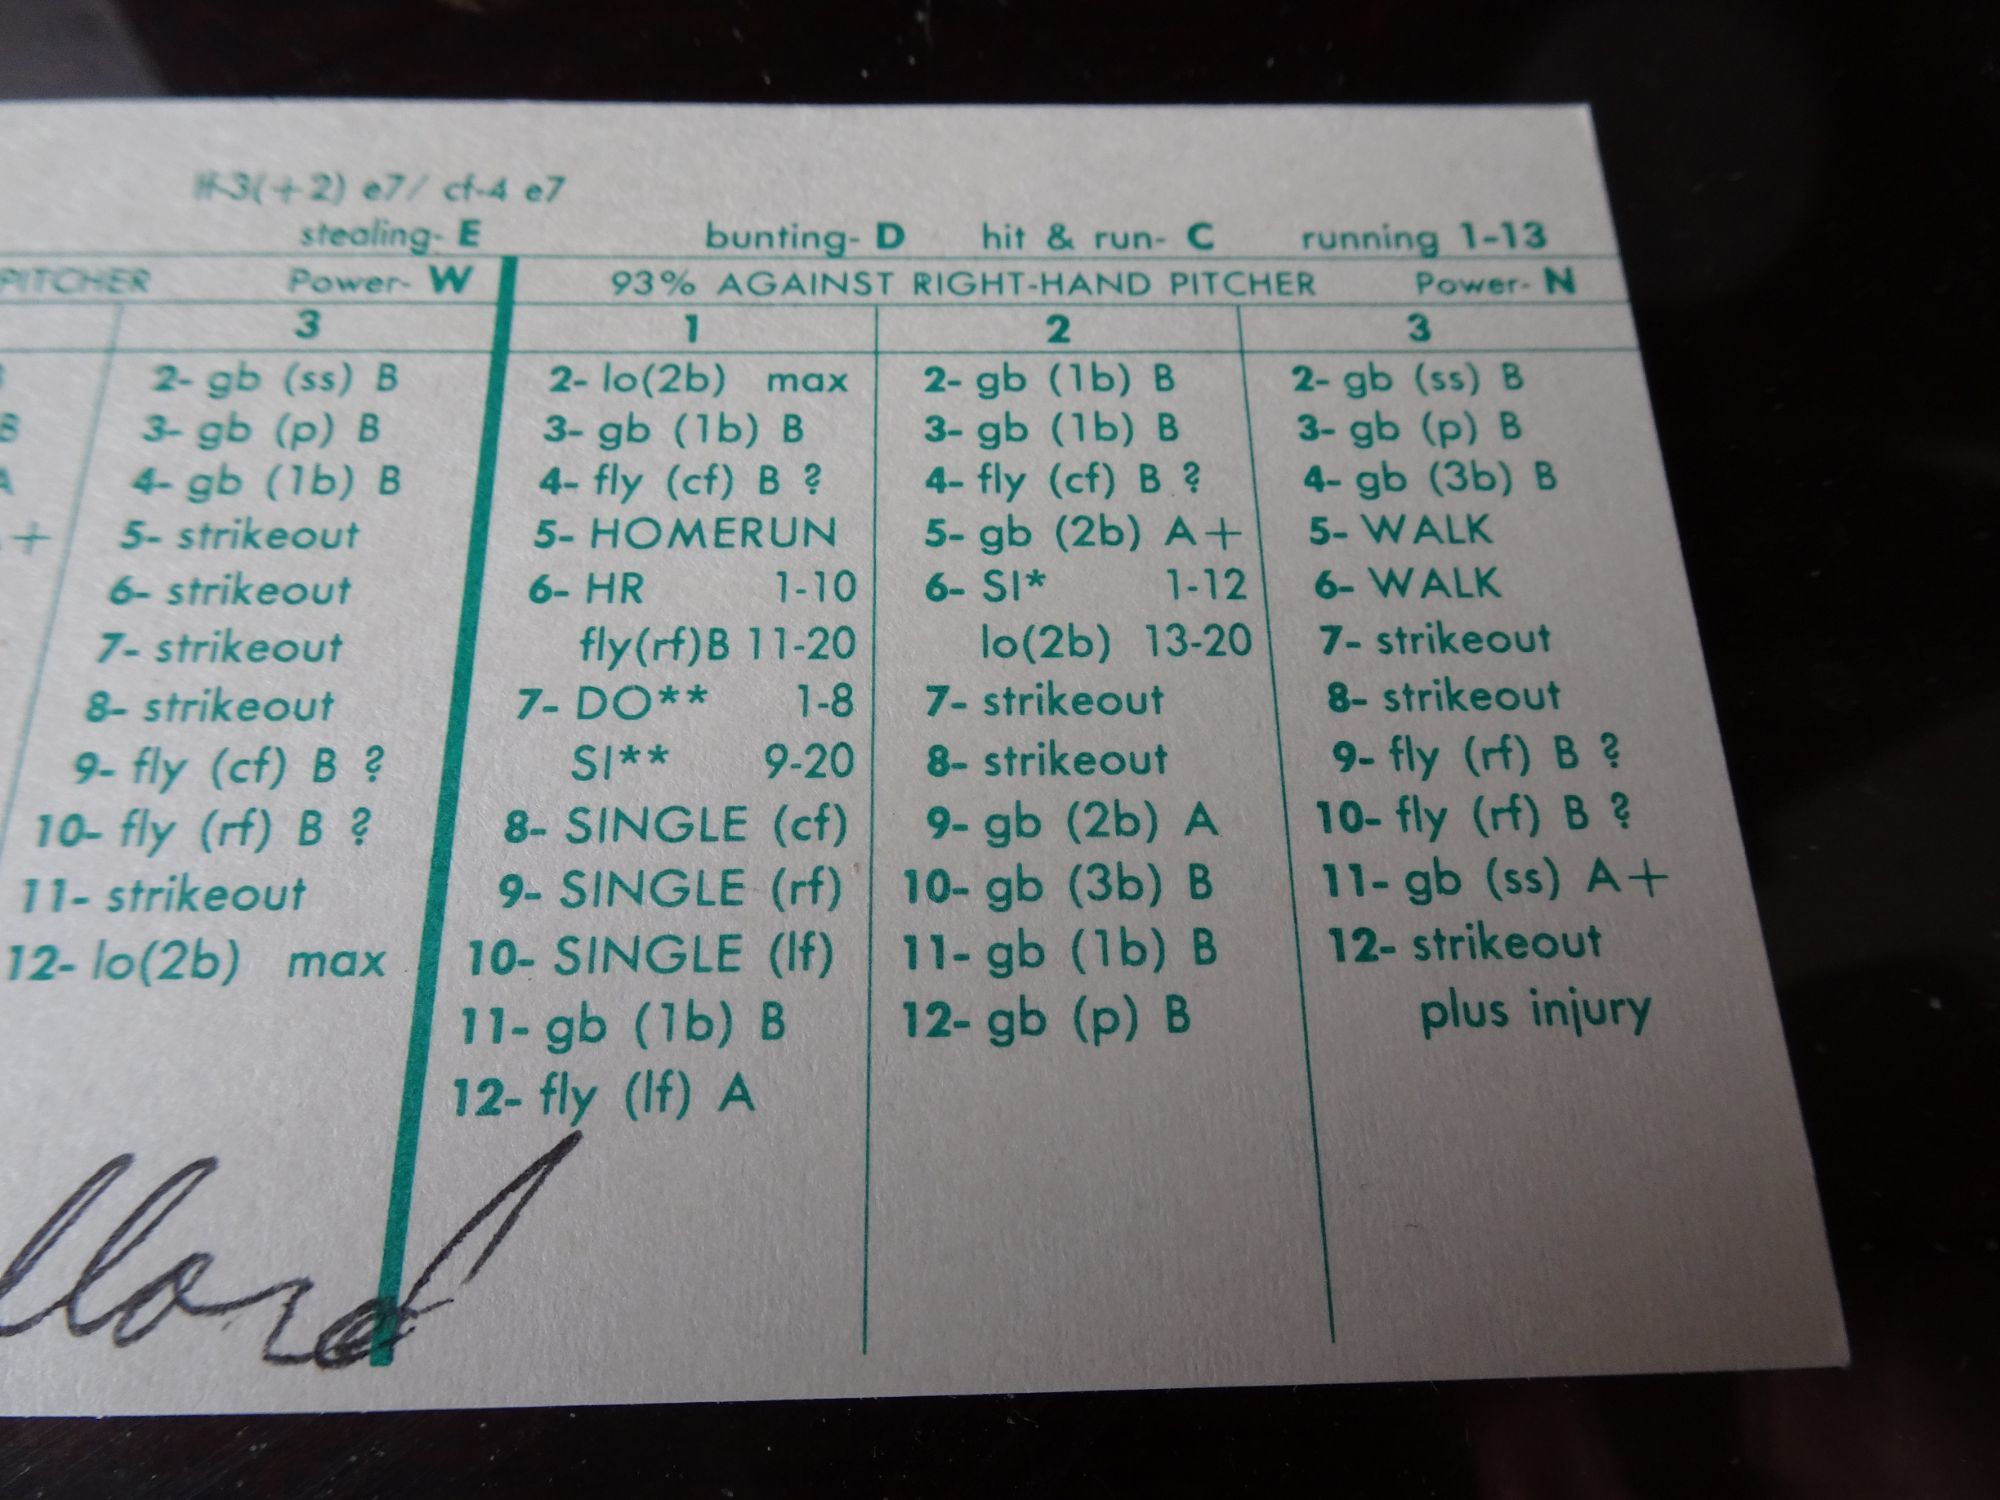 lf-3(+2) e7/ cf-4 e7
stealing- E bunting- D hit & run- C running 1-13
PITCHER Power- W
3
2- gb (ss) B
3- gb (p) B
4- gb (1b) B
5- strikeout
6- strikeout
7- strikeout
8- strikeout
9- fly (cf) B ?
10- fly (rf) B ?
11- strikeout
12- lo(2b) max
93% AGAINST RIGHT-HAND PITCHER Power- N
1
2- lo(2b) max
3- gb (1b) B
4- fly (cf) B ?
5- HOMERUN
6- HR 1-10
fly(rf)B 11-20
7- DO** 1-8
SI** 9-20
8- SINGLE (cf)
9- SINGLE (rf)
10- SINGLE (lf)
11- gb (1b) B
12- fly (lf) A
2
2- gb (1b) B
3- gb (1b) B
4- fly (cf) B ?
5- gb (2b) A+
6- SI* 1-12
lo(2b) 13-20
7- strikeout
8- strikeout
9- gb (2b) A
10- gb (3b) B
11- gb (1b) B
12- gb (p) B
3
2- gb (ss) B
3- gb (p) B
4- gb (3b) B
5- WALK
6- WALK
7- strikeout
8- strikeout
9- fly (rf) B ?
10- fly (rf) B ?
11- gb (ss) A+
12- strikeout
plus injury